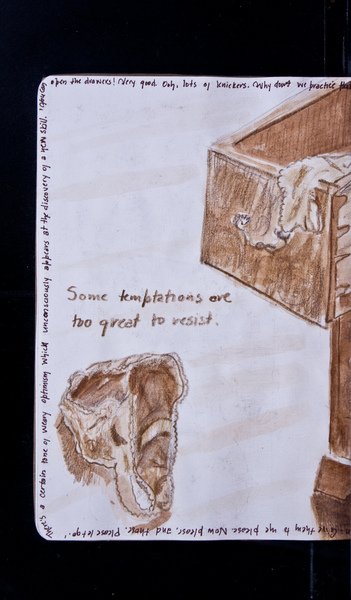 open the drawers! Very good. Ooh, lots of knickers. Why don't we practice
Some temptations are
too great to resist.
Give them to me please. Now please. and those. Please let go.'
There's a certain tone of weary optimism which unconsciously appears at the discovery of a new skill. 'You can